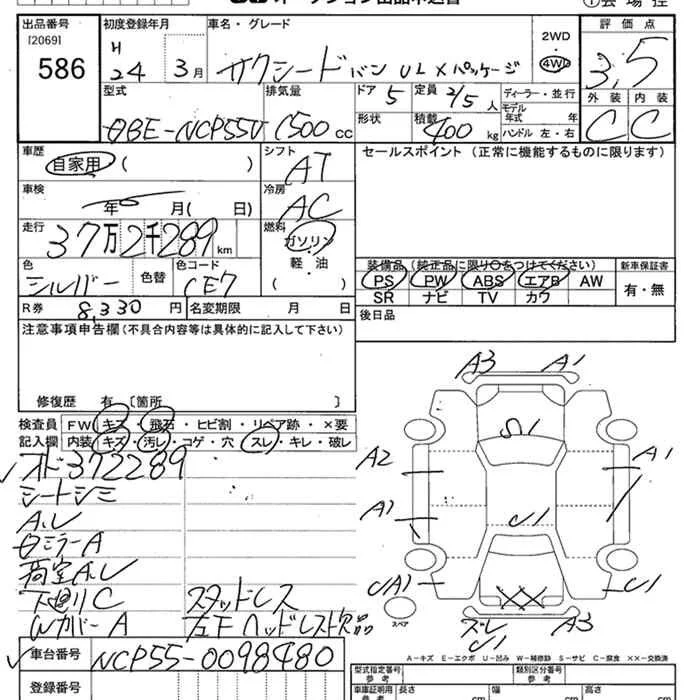 出品番号 初度登録年月 車名・グレード 2WD 評価点
[2069] H
586 24 3月 サクシードバン UL X パッケージ 4WD 3.5
型式 排気量 ドア 5 定員 2/5人 ディーラー・並行 外装 内装
モデル年式 年
DBE-NCP55V 1500cc 形状 積載 400kg ハンドル 左・右 C C
車歴 シフト セールスポイント (正常に機能するものに限ります)
自家用 ( ) AT
車検 冷房
年 月( 日) AC
走行 燃料
37万2千289km ガソリン
装備品(純正品に限り○をつけてください) 新車保証書
色 色替 色コード 軽・油 PS PW ABS エアB AW 有・無
シルバー CE7 ( ) SR ナビ TV カワ
R券 8,330円 名変期限 月 日 後日品
注意事項申告欄(不具合内容等は具体的に記入して下さい)
修復歴 有 [箇所 ]
検査員 FW キズ・飛石・ヒビ割・リペア跡・×要
記入欄 内装 キズ・汚レ・コゲ・穴・スレ・キレ・破レ
オド372289
シートシミ
A.レ
ミラーA
荷室A.レ
下廻りC スタッドレス
WカバーA 左下ヘッドレスト欠品
A3 A1
S1
A2 A1
A1 U1
UA1 U1
XX
スペア ズレ A3
U1
車台番号 NCP55-0098480
A-キズ E-エクボ U-凹み W-補修跡 S-サビ C-腐食 ××-交換済
型式指定番号 類別区分番号
参考 参考
登録番号 車庫証明用 長さ 幅 高さ
参考 cm cm cm